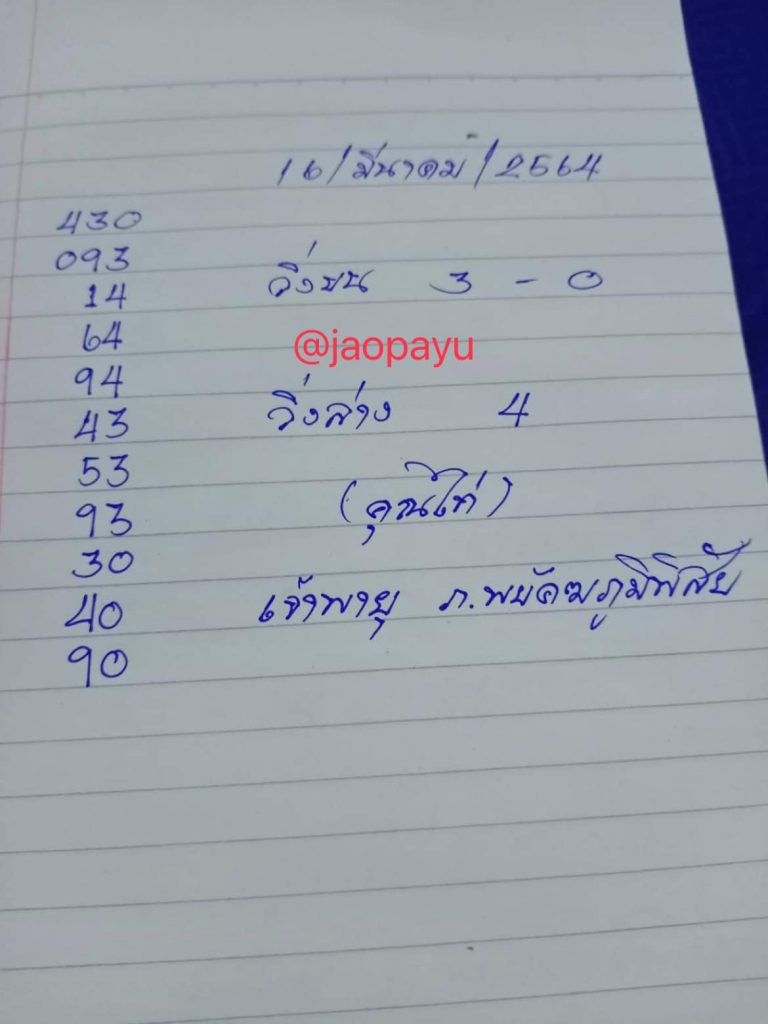 16/มีนาคม/2564
430
093
14
64
94
43
53
93
30
40
90
วิ่งบน 3 - 0
@jaopayu
วิ่งล่าง 4
เจ้าพายุ ภ.พยัคฆภูมิพิสัย